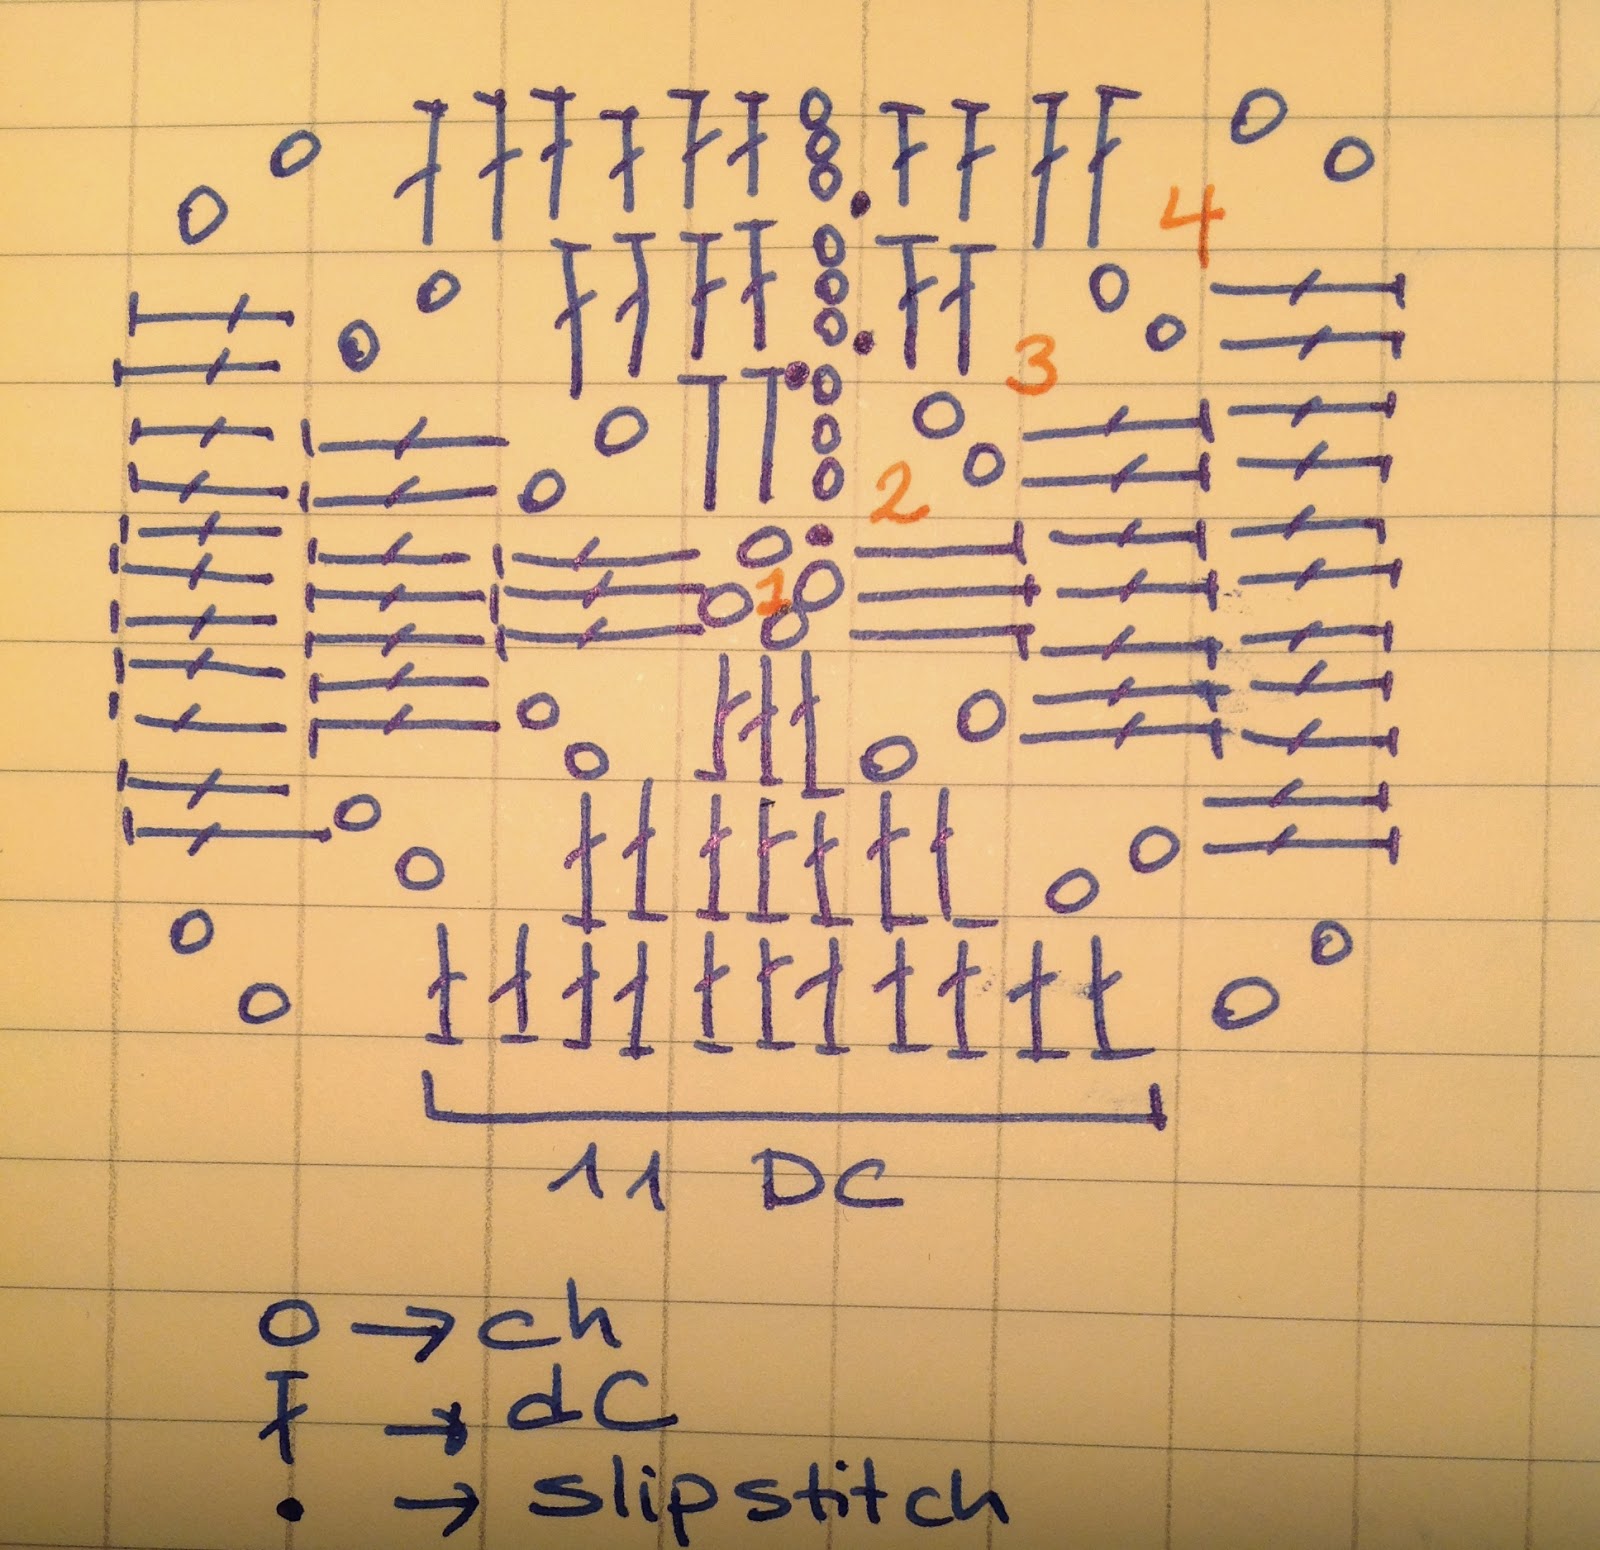 4
3
2
1
11 DC
ch
dC
slipstitch